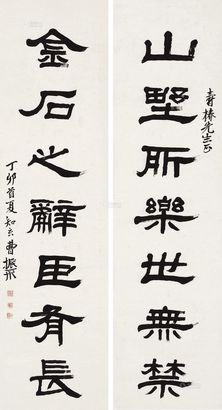 壽椿先生正
山墅所樂世無禁
金石之辭臣有長
丁卯首夏知曹振